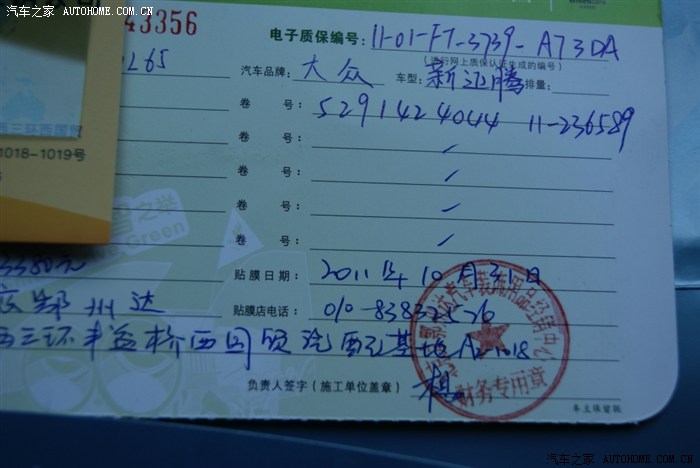 汽车之家 AUTOHOME.COM.CN
43356
电子质保编号: 11-01-FT-3739-A73DA
(进行网上质保认证生成的编号)
汽车品牌: 大众 车型: 新迈腾 排量:
卷 号: 5291424044 11-236589
1018-1019号
卷 号:
卷 号:
卷 号:
卷 号:
Green
贴膜日期: 2011年10月31日
郑州达
贴膜店电话: 010-83832576
西三环丰益桥西国贸汽配基地A2-1018
负责人签字(施工单位盖章)
财务专用章
车主保留联
汽车之家 AUTOHOME.COM.CN